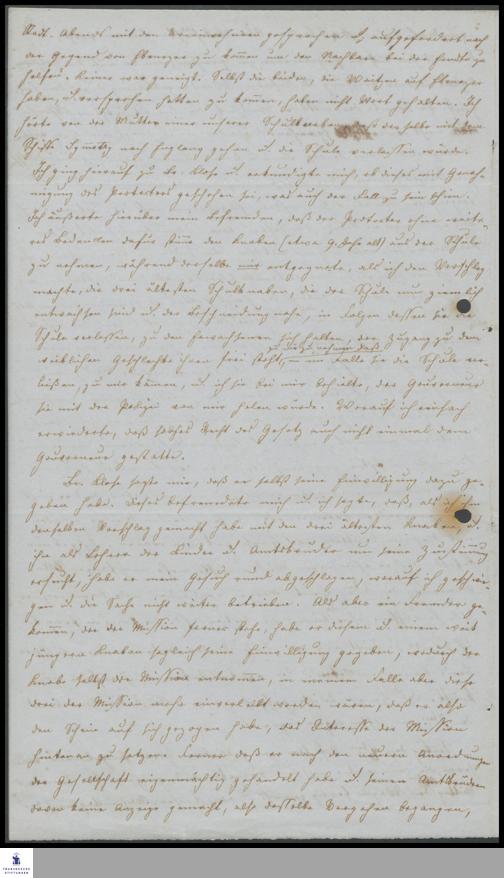 Stadt. Abends mit den Einwohnern gesprochen u. aufgefordert nach
der Gegend von Ebenezer zu kommen um den Nachbarn bei der Ernte zu
helfen. Keiner war geneigt. Selbst die beiden, die Weitzen auf Ebenezer
haben, u. versprochen hatten zu kommen, haben nicht Wort gehalten. Ich
hörte von der Mutter eines unserer Schulknaben, daß derselbe mit dem
Schiffe nach England gehen u. die Schule verlassen würde.
Ich ging hierauf zu Br. Klose u. erkundigte mich, ob dieses mit Geneh-
migung des Protectors geschehen sei, was auch der Fall zu sein schien.
Ich äußerte hierüber mein Befremden, daß der Protector ohne weite-
res Bedenken dafür stimme den Knaben (etwa 9 Jahr alt) aus der Schule
zu nehmen, während derselbe mir entgegnete, als ich den Vorschlag
machte, die drei ältesten Schulknaben, die der Schule nun ziemlich
entwachsen sind u. der Beschneidung nahe, in Folge dessen sie die
Schule verlassen, zu den Erwachsenen sich halten, der Zugang zu dem
weiblichen Geschlechte ihnen frei steht, im Falle sie die Schule ver-
ließen, zu mir kämen, u. ich sie bei mir behielte, der Gouverneur
sie mit der Polizei von mir holen würde. Worauf ich einfach
erwiederte, daß solches Recht das Gesetz auch nicht einmal dem
Gouverneur gestatte.
Br. Klose sagte mir, daß er selbst seine Einwilligung dazu ge-
geben habe. Dieses befremdete mich u. ich sagte, daß, als ich ihm
denselben Vorschlag gemacht habe mit den drei ältesten Knaben, u.
ihn als Lehrer der Kinder u. Amtsbruder um seine Zustimmung
ersucht, habe er mein Gesuch rund abgeschlagen, worauf ich geschwie-
gen u. die Sache nicht weiter betrieben. Als aber ein Fremder ge-
kommen, der der Mission ferner stehe, habe er diesem u. einem weit
jüngern Knaben sogleich seine Einwilligung gegeben, wodurch der
Knabe selbst der Mission entnommen, in meinem Falle aber diese
drei der Mission mehr einverleibt worden wären, daß er also
den Schein auf sich gezogen habe, das Interesse der Mission
hintenan zu setzen; ferner daß er nach den neuern Anordnungen
der Gesellschaft eigenmächtig gehandelt habe u. seinen Amtsbrüdern
davon keine Anzeige gemacht, also dasselbe Vergehen begangen,
FRANCKESCHE
STIFTUNGEN